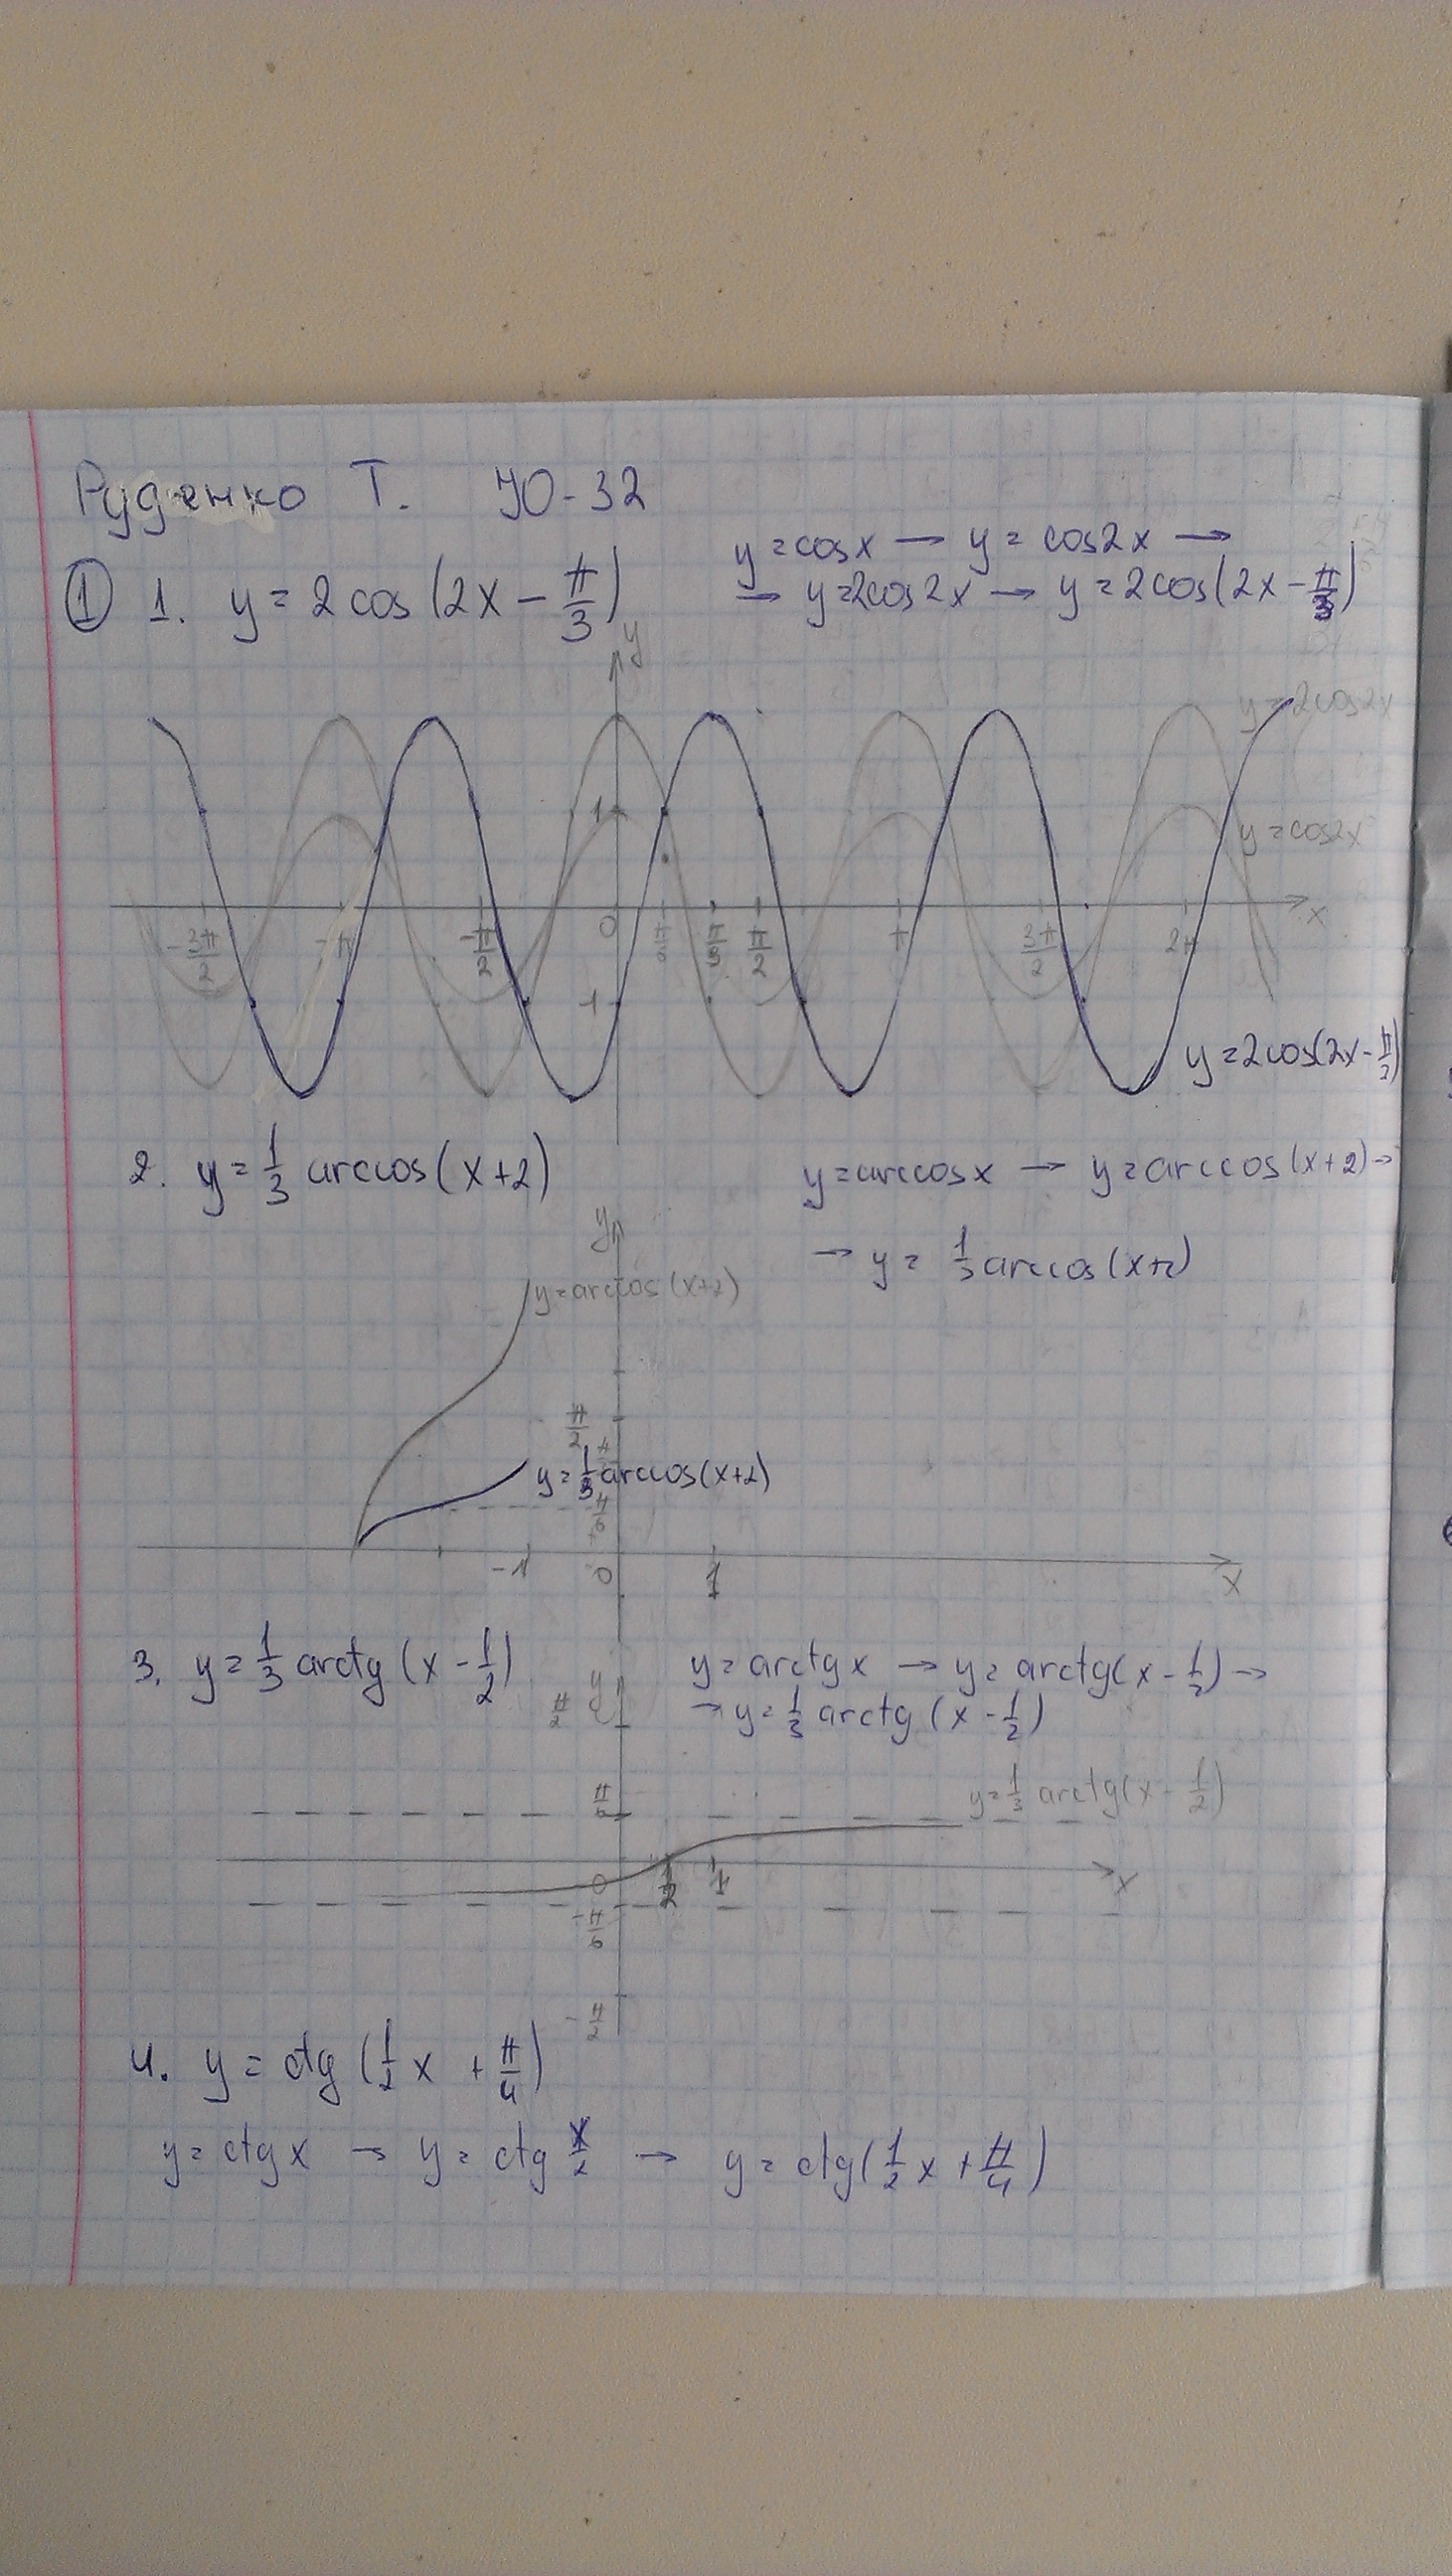 Руденко Т. УО-32
① 1. y = 2 cos (2x - π/3) y = cosx → y = cos2x →
→ y=2cos2x → y = 2cos(2x - π/3)
y
y = 2cos2x
1
y = cos2x
-3π/2 -π -π/2 0 π/6 π/3 π/2 π 3π/2 2π x
-1
y = 2cos(2x - π/2)
2. y = 1/3 arccos (x+2) y = arccosx → y = arccos (x+2) →
→ y = 1/3 arccos (x+2)
y
y = arccos (x+2)
π/2
y = 1/3 arccos(x+2)
π/6
-1 0 1 x
3. y = 1/3 arctg (x - 1/2) y = arctgx → y = arctg(x - 1/2) →
→ y = 1/3 arctg (x - 1/2)
π/2 y
π/6 y = 1/3 arctg(x - 1/2)
0 1/2 1 x
-π/6
-π/2
4. y = ctg (1/2 x + π/4)
y = ctgx → y = ctg x/2 → y = ctg(1/2 x + π/4)